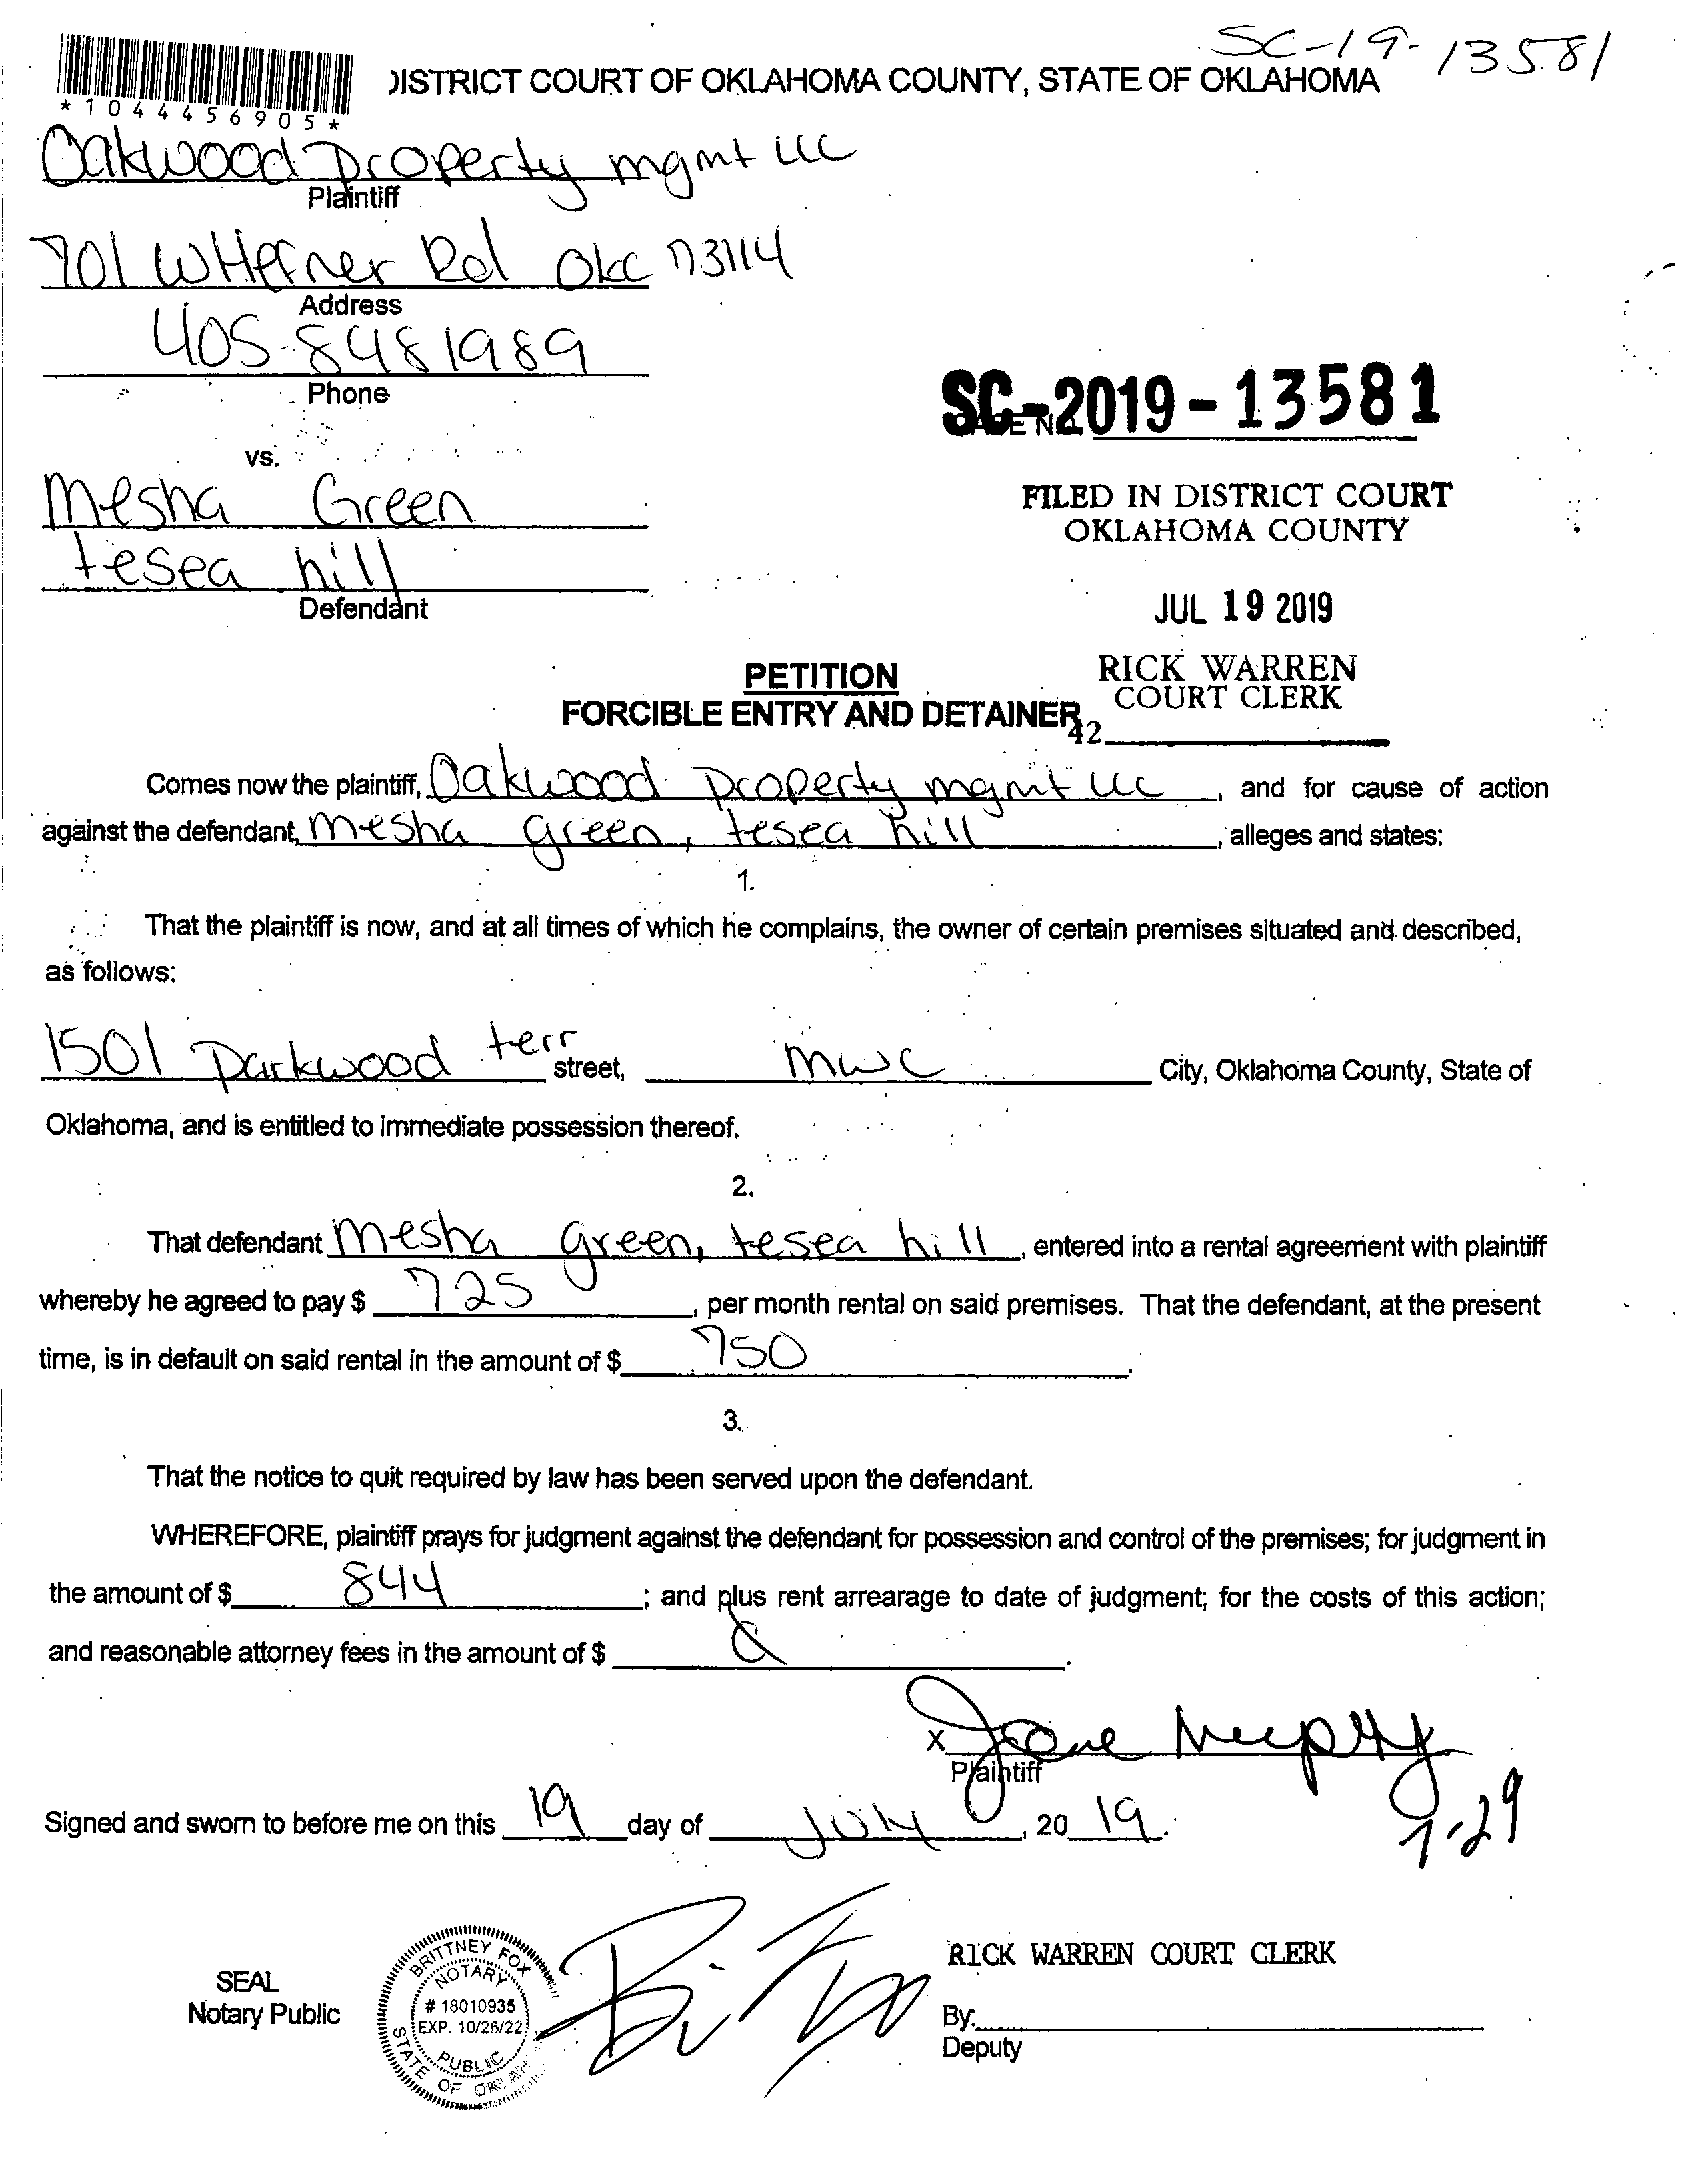 SC-19-13581
DISTRICT COURT OF OKLAHOMA COUNTY, STATE OF OKLAHOMA
*1044456905*
Oakwood Property mgmt LLC
Plaintiff
701 W Hefner Rd OKC 73114
Address
405-848 1989
Phone
SC-2019-13581
vs.
Mesha Green
tesea hill
Defendant
FILED IN DISTRICT COURT
OKLAHOMA COUNTY
JUL 19 2019
RICK WARREN
COURT CLERK
42
PETITION
FORCIBLE ENTRY AND DETAINER
Comes now the plaintiff, Oakwood Property mgmt LLC, and for cause of action
against the defendant, Mesha green, tesea hill, alleges and states:
1.
That the plaintiff is now, and at all times of which he complains, the owner of certain premises situated and described,
as follows:
1501 Parkwood terr street, mwc City, Oklahoma County, State of
Oklahoma, and is entitled to immediate possession thereof.
2.
That defendant Mesha green, tesea hill, entered into a rental agreement with plaintiff
whereby he agreed to pay $ 725, per month rental on said premises. That the defendant, at the present
time, is in default on said rental in the amount of $ 750.
3.
That the notice to quit required by law has been served upon the defendant.
WHEREFORE, plaintiff prays for judgment against the defendant for possession and control of the premises; for judgment in
the amount of $ 844; and plus rent arrearage to date of judgment; for the costs of this action;
and reasonable attorney fees in the amount of $ .
x
Plaintiff
Signed and sworn to before me on this 19 day of July, 20 19.
7-29
SEAL
Notary Public
BRITTNEY FOX
NOTARY
# 18010935
EXP. 10/26/22
PUBLIC
STATE OF
RICK WARREN COURT CLERK
By:
Deputy